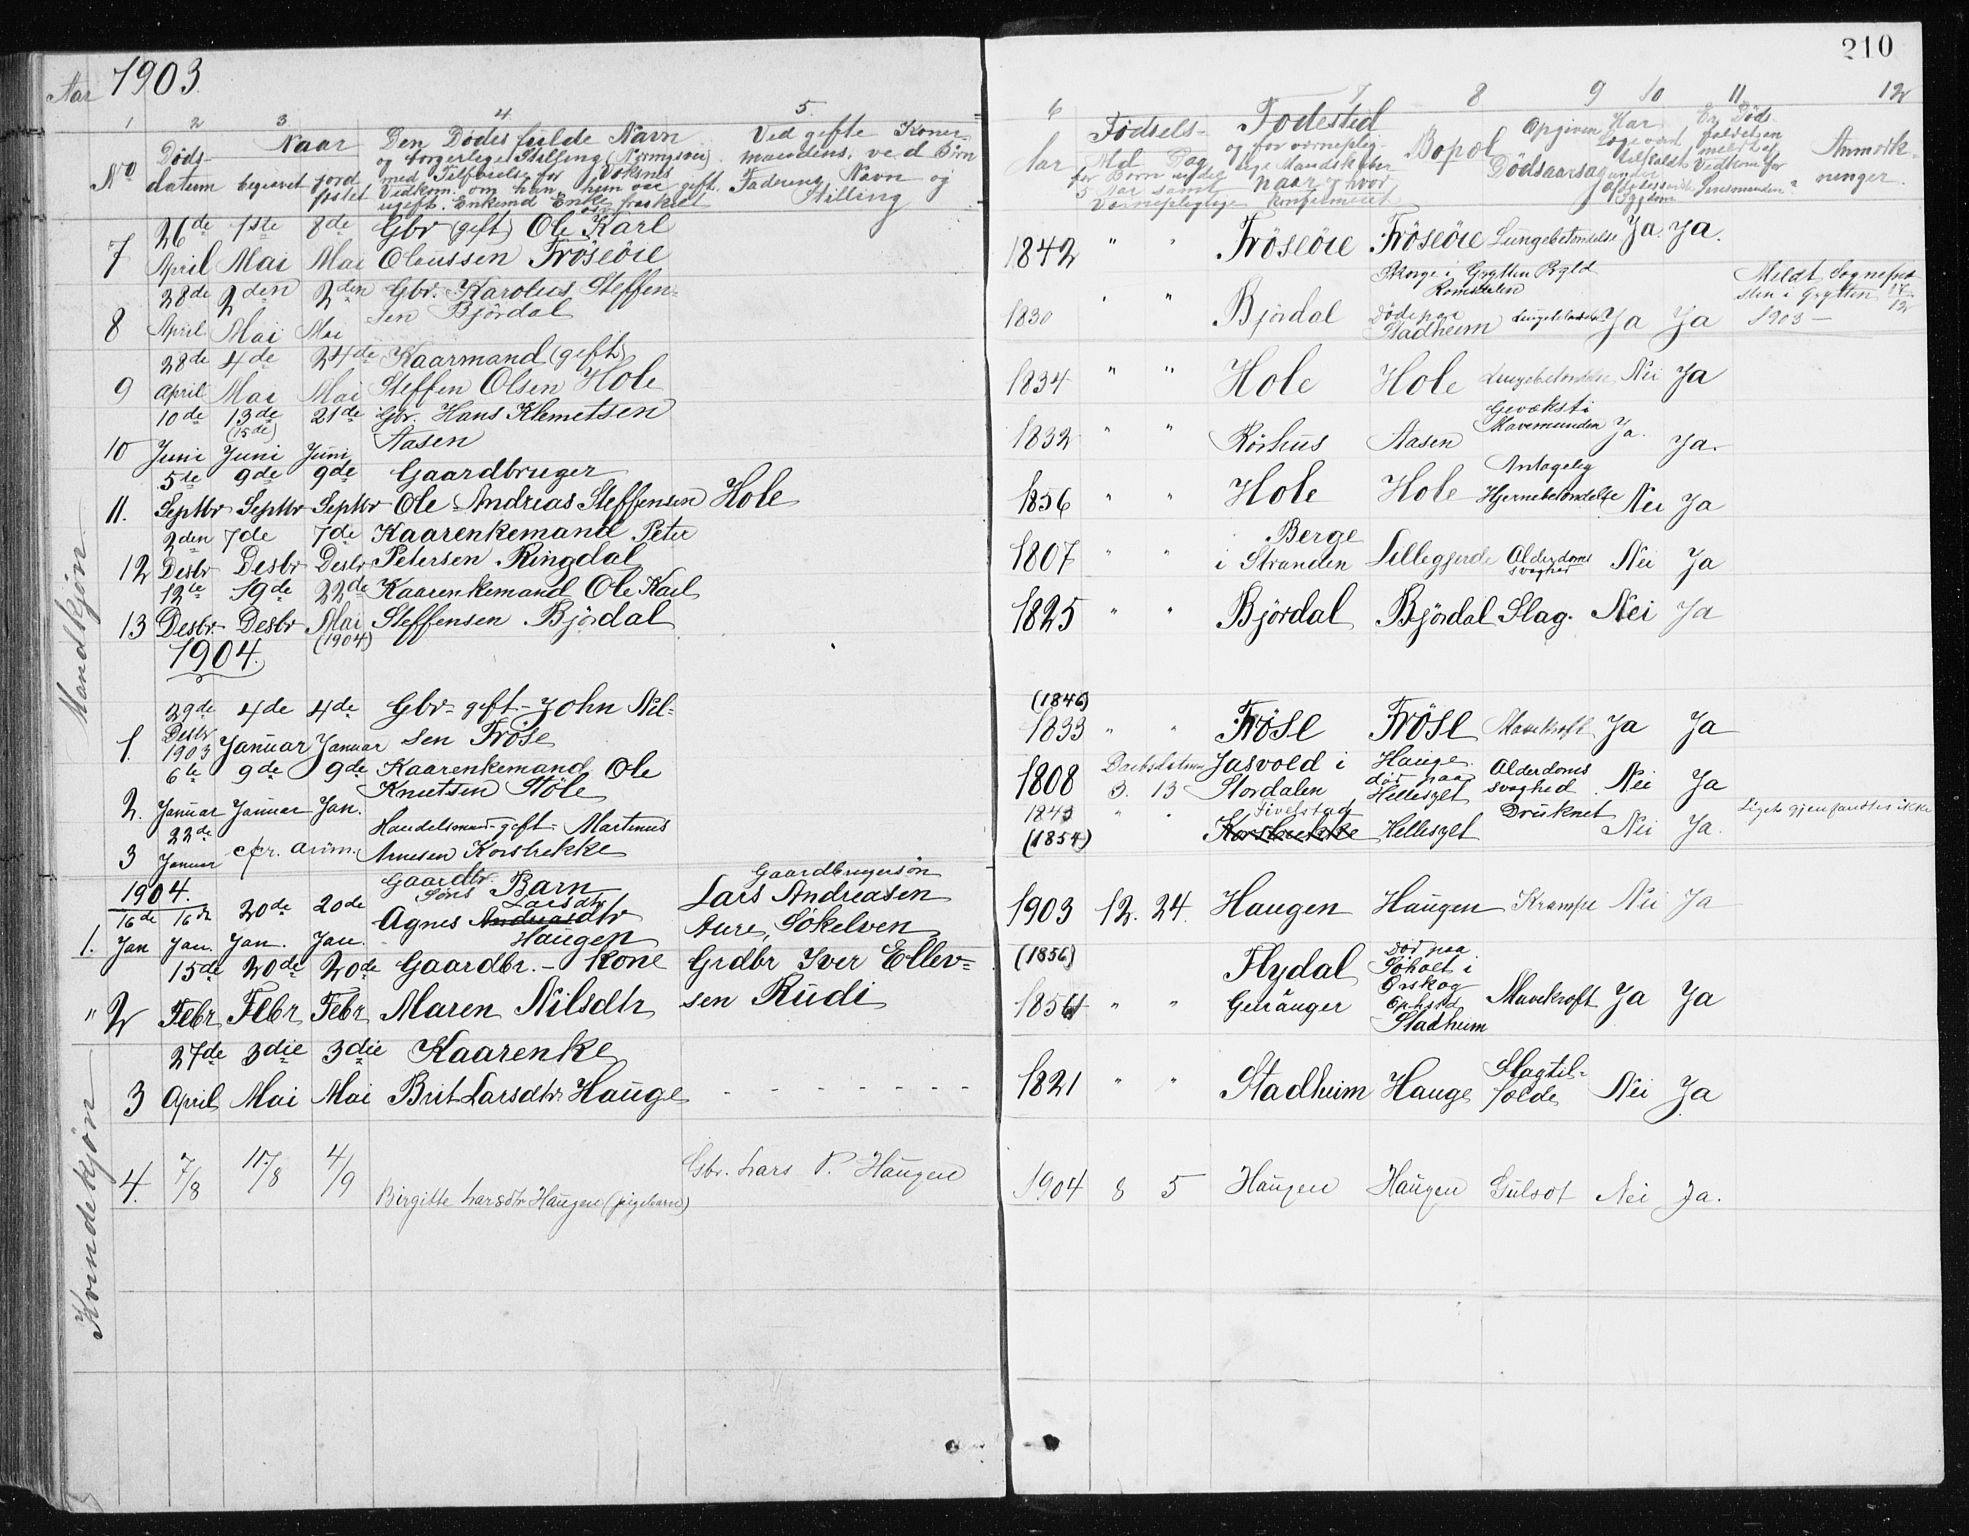 210
Aar 1903.
1 2 3. 4. 5. 6 7 8 9 10 11 12
No Døds- datum
Naar begravet jord festet
Den Dødes fulde Navn
og borgerlige Stilling (Næringsvei)
med Tilføielse for Voksnes
Vedkom. om han, hun var gift.
ugift. Enkemd Enke osv. fraskilt
Ved gifte Koner
mandens, ved Børn
Faderens Navn og
Stilling
Aar
Fødsels-
Md. Dag
for Børn under
5 Aar samt
Værnepligtige
Fødested
og for værneplig-
tige Mandskaber
naar og hvor
konfirmeret
Bopæl
Opgiven
Dødsaarsag
Har
Læge været
tilkaldt
under
Dødssygdom
Er Døds-
faldet an
meldt af
Vedkom. for
Anmærk-
ninger.
Mandkjøn
7 26de April 1ste Mai 8de Mai Gbr (gift) Ole Karl
Olaussen Frøseøie
1842 " " Frøseøie Frøseøie Lungebetændelse Ja. Ja.
8 28de April 2den Mai 2den Mai Gbr. Karolus Steffen-
sen Bjørdal
1830 " " Bjørdal Skorge i Grytten Pgld
Romsdalen
Døde paa
Stadheim Ja Ja Meldt Sognepre
sten i Grytten 17/12
1903 —
9 28de April 4de Mai 24de Mai Kaarmand (gift)
Steffen Olsen Hole
1834 " " Hole Hole Lungebetændelse Nei Ja
10 10de Juni 13de (15de) Juni 21de Juni Gbr. Hans Klemetsen
Aasen
1832 " " Rørhus Aasen Gevækst i
Mavemunden Ja. Ja.
11. 5te Septbr 9de Septbr 9de Septbr Gaardbruger
Ole Andrias Steffensen Hole
1856 " " Hole Hole Antagelig
Hjernebetændelse Nei Ja
12 2den Desbr 7de Desbr 7de Desbr Kaarenkemand Peter
Petersen Ringdal
1807 " " Berge
i Stranden Lillegjerde Alderdoms
svaghed Nei Ja
13 12te Desbr. 19de Desbr 22de Mai (1904) Kaarenkemand Ole Karl
Steffensen Bjørdal
1825 " " Bjørdal Bjørdal Slag. Nei Ja
1904.
1. 29de Desbr 1903 4de Januar 4de Januar Gbr- gift- John Nil-
sen Frøse
(1846)
1833 " " Frøse Frøse Mavekræft Ja Ja
2. 6te Januar 9de Januar 9de Jan. Kaarenkemand Ole
Knutsen Støle
1808 Daabsdatum 3. 13 Jasvold i
Stordalen Hauge.
død paa
Hellesylt Alderdoms
svaghed Nei Ja
3 22de Januar cfr. anm. Handelsmand- gift- Martinus
Arnesen Korsbrekke
1843
(1854) " " Fivelstad
Korsbrekke Hellesylt Druknet Nei Ja. Liget gjenfandtes ikke
Kvindekjøn
1904.
1. 16de Jan 16de Jan. 20de Jan. 20de Jan. Gaardbr.
Søns Barn
Agnes Larsdtr Andreasdtr
Haugen
Gaardbrugersøn
Lars Andreasen
Aure, Søkelven
1903 12. 24. Haugen Haugen Krampe Nei Ja
" 2 15de Febr 20de Febr 20de Febr Gaardbr.- Kone
Maren Nilsdtr
Grdbr Iver Ellev-
sen Rudi
(1856)
1854 " " Flydal
Geiranger død paa
Sjøholt i
Ørskog
Ophold
Stadheim Mavekræft Ja Ja
3 27de April 3die Mai 3die Mai Kaarenke
Brit Larsdtr Hauge - - - - - - -
1821 " " Stadheim Hauge Slagtil-
fælde Nei Ja
4. 7/8 11/8 4/9 Birgitte Larsdtr Haugen (pigebarn)
Gbr. Lars P. Haugen
1904 8 5 Haugen Haugen Gulsot Nei Ja.